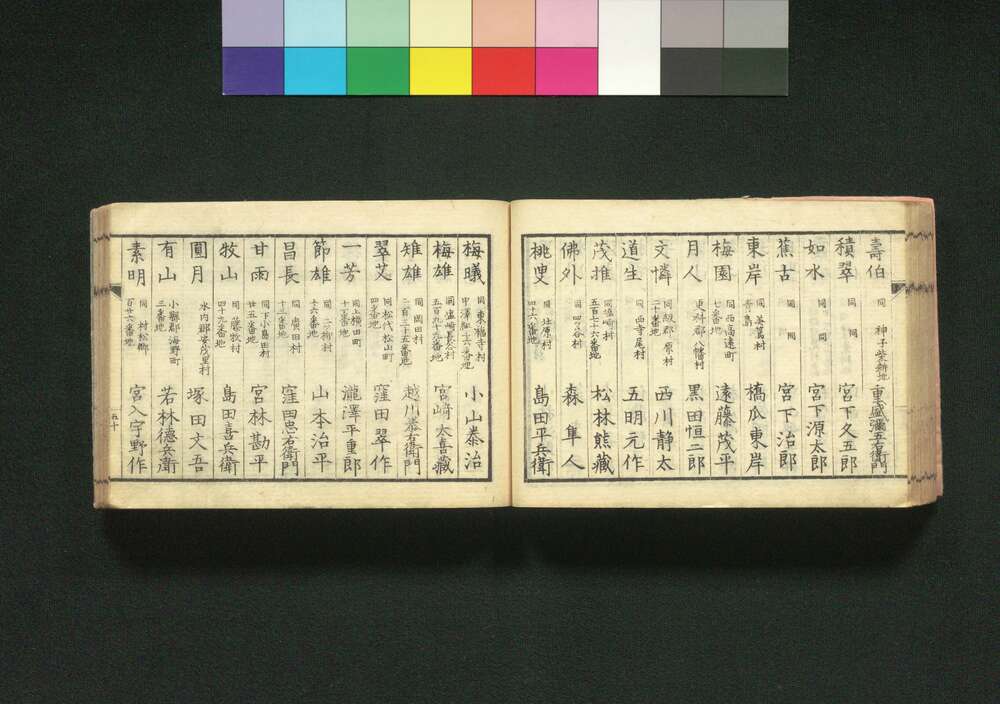 壽伯 同 神子柴耕地 重盛彌五右衛門
積翠 同 同 宮下久五郎
如水 同 同 宮下源太郎
蕉古 同 同 宮下治郎
東岸 同 美篶村 青島 橋爪東岸
梅園 同 西高遠町 七番地 遠藤茂平
月人 更科郡八幡村 黒田恒二郎
文憐 同級郡原村 二十番地 西川静太
道生 同 西寺尾村 五明元作
茂推 同 塩崎村 五百七十六番地 松林熊藏
佛外 同 四ツ谷村 森隼人
桃叟 同 杜原村 四十六番地 島田平兵衛
梅曦 同 東福寺村 小山泰治
梅雄 同 塩崎長谷村 五百九十九番地 宮﨑太喜藏
雉雄 同 岡田村 二百三十五番地 越川恭右衛門
翠艾 同 松代松山町 四番地 窪田翠作
一芳 同 上横田町 十五番地 瀧澤平重郎
節雄 同 二ツ柳村 十六番地 山本治平
昌長 同 廣田村 十三番地 窪田忠右衛門
甘雨 同 下小島田村 廿五番地 宮林勘平
牧山 同 藤牧村 四十六番地 島田喜兵衛
圓月 水内郡安茂里村 塚田文吾
有山 小縣郡海野町 三番地 若林德兵衛
素明 同 村松郷 百廿六番地 宮入宇野作
五十